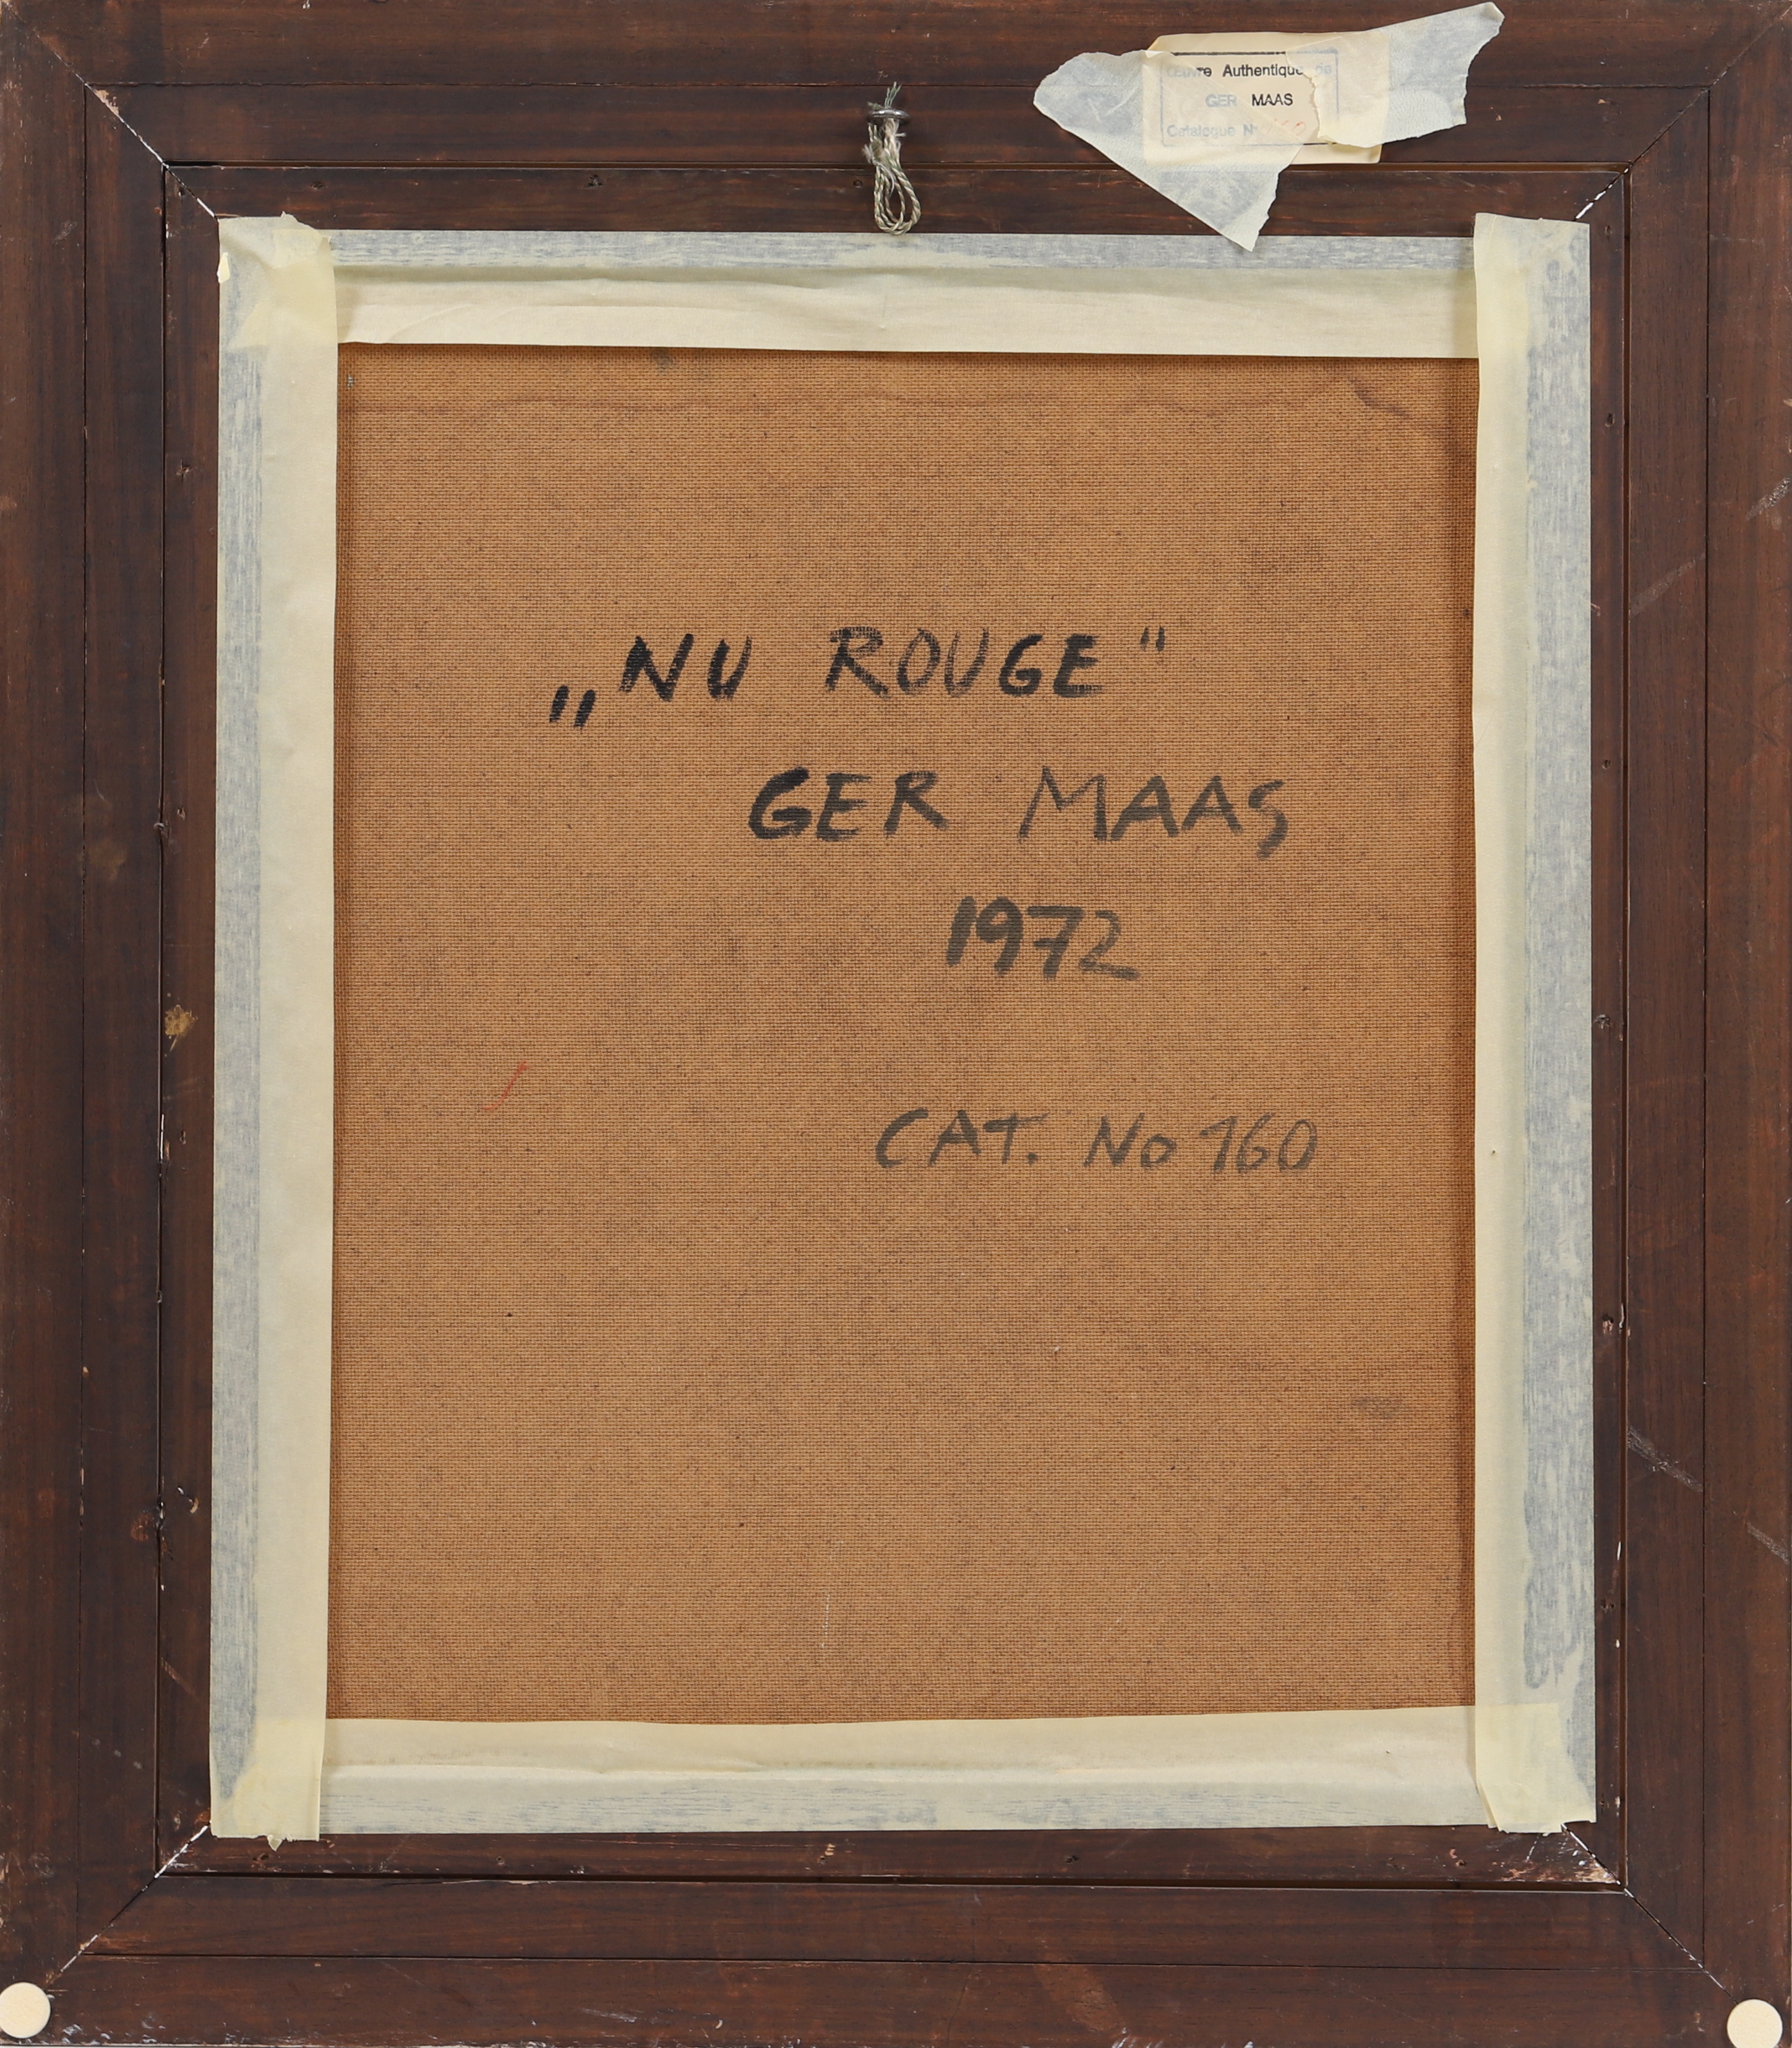 Œuvre Authentique de
GER MAAS
Catalogue N°
„NU ROUGE"
GER MAAS
1972
CAT. No 160